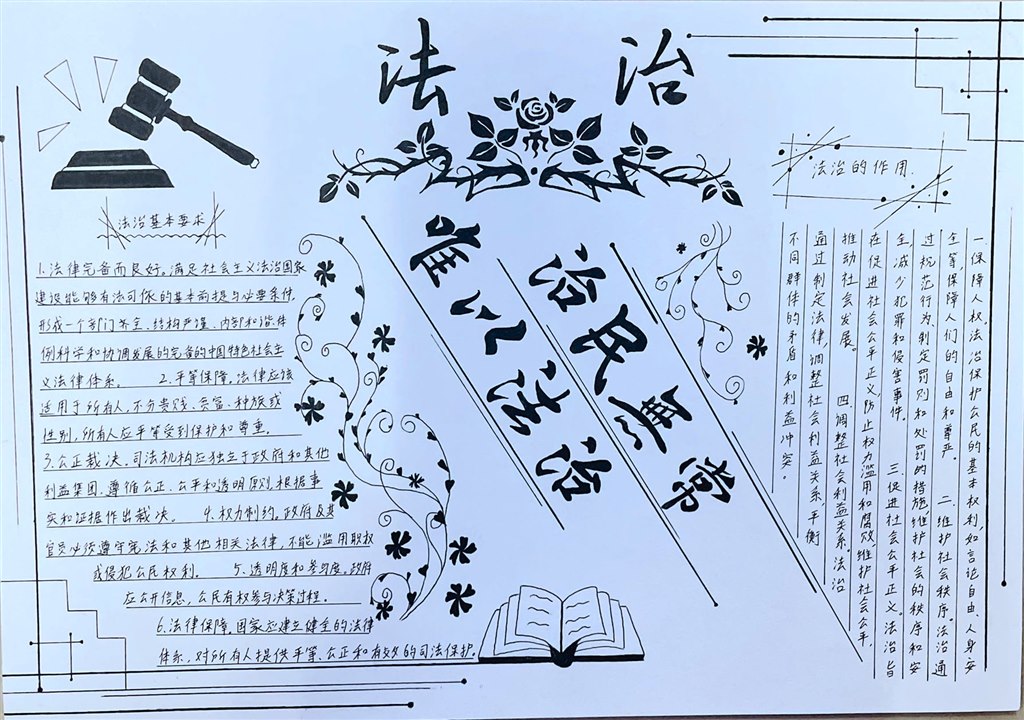 法治
法治基本要求
1.法律完备而良好。满足社会主义法治国家
建设能够有法可依的基本前提与必要条件,
形成一个部门齐全、结构严谨、内部和谐、体
例科学和协调发展的完备的中国特色社会主
义法律体系。 2.平等保障。法律应该
适用于所有人,不分贵贱、贫富、种族或
性别,所有人应平等受到保护和尊重。
3.公正裁决。司法机构应独立于政府和其他
利益集团,遵循公正、公平和透明原则,根据事
实和证据作出裁决。 4.权力制约。政府及其
官员必须遵守宪法和其他相关法律,不能滥用职权
或侵犯公民权利。 5.透明度和参与度。政府
应公开信息,公民有权参与决策过程。
6.法律保障。国家应建立健全的法律
体系,对所有人提供平等、公正和有效的司法保护。
治民無常
唯以法治
法治的作用.
一.保障人权。法治保护公民的基本权利,如言论自由、人身安
全等,保障人们的自由和尊严。 二.维护社会秩序。法治通
过规范行为,制定罚则和处罚的措施,维护社会的秩序和安
全,减少犯罪和侵害事件。 三.促进社会公平正义。法治旨
在促进社会公平正义,防止权力滥用和腐败,维护社会公平,
推动社会发展。 四.调整社会利益关系。法治
通过制定法律,调整社会利益关系,平衡
不同群体的矛盾和利益冲突。